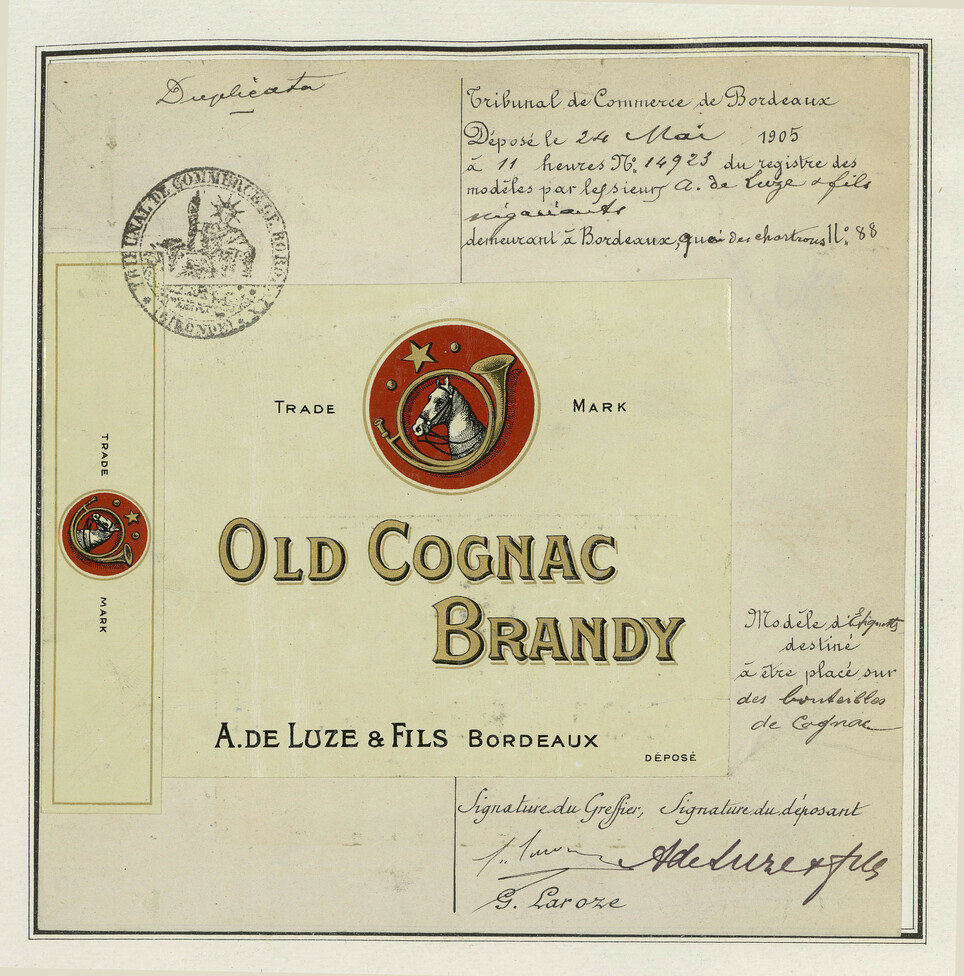 Duplicata
Tribunal de Commerce de Bordeaux
Déposé le 24 Mai 1905
à 11 heures No. 14923 du registre des
modèles par les sieurs A. de Luze & fils
négociants
demeurant à Bordeaux, quai des chartrons No. 88
TRIBUNAL DE COMMERCE DE BORDEAUX
(GIRONDE)
TRADE MARK
OLD COGNAC
BRANDY
A. DE LUZE & FILS BORDEAUX
DÉPOSÉ
TRADE
MARK
Modèle d'Etiquette
destiné
à être placé sur
des bouteilles
de Cognac
Signature du Greffier, Signature du déposant
A de Luze & fils
G. Laroze